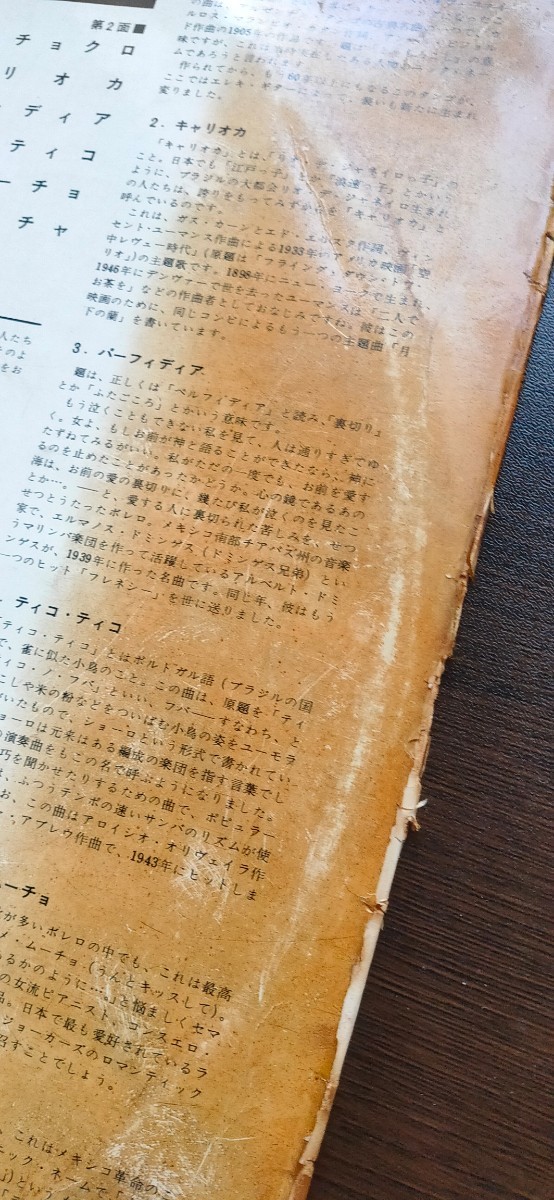 第2面■
チョクロ
リオカ
ディア
ティコ
ーチョ
チャ
人たち
のよ
をお
の曲は、
ルロス・
ド作曲の1905年の
味ですが、これは
ムであろうと言われます
作られてから、もう60年以上にもなるこのタンゴが、
ここではエレキ・ギターによって、装いも新たに生まれ
変りました。
2. キャリオカ
「キャリオカ」とは、「リオ・デ・ジャネイロっ子」の
こと。日本でも「江戸っ子」とか「浪速っ子」とかいう
ように、ブラジルの大都会リオ・デ・ジャネイロ生まれ
の人たちは、誇りをもってみずからを「キャリオカ」と
呼んでいるのです。
これは、ガス・カーンとエド・エリスク作詞、ヴィン
セント・ユーマンス作曲による1933年のアメリカ映画「空
中レヴュー時代」(原題は「フライング・ダウン・トゥ・
リオ」)の主題歌です。1898年にニューヨークで生まれ
1946年にデンヴァーで世を去ったユーマンスは「二人で
お茶を」などの作曲者としておなじみですね。彼はこの
映画のために、同じコンビによるもう一つの主題曲「月
下の蘭」を書いています。
3. パーフィディア
題は、正しくは「ペルフィディア」と読み、「裏切り」
とか「ふたごころ」とかいう意味です。
もう泣くこともできない私を見て、人は通りすぎてゆ
く。女よ、もしお前が神と語ることができたなら、神に
たずねてみるがいい。私がただの一度でも、お前を愛す
るのを止めたことがあったかどうか。心の鏡であるあの
海は、お前の愛の裏切りに、幾たび私が泣くのを見たこ
とか…。――と、愛する人に裏切られた苦しみを、せつ
せつとうたったボレロ。メキシコ南部チアパス州の音楽
家で、エルマノス・ドミンゲス(ドミンゲス兄弟)とい
うマリンバ楽団を作って活躍しているアルベルト・ドミ
ンゲスが、1939年に作った名曲です。同じ年、彼はもう
一つのヒット「フレネシー」を世に送りました。
ティコ・ティコ
「ティコ・ティコ」とはポルトガル語(ブラジルの国
で、雀に似た小鳥のこと。この曲は、原題を「ティ
ィコ・ノ・フバ」といい、フバ――すなわち、と
こしや米の粉などをついばむ小鳥の姿をユーモラ
いたもので、ショーロという形式で書かれてい
ョーロは元来はある編成の楽団を指す言葉でし
の演奏曲をもこの名で呼ぶようになりました。
巧を聞かせたりするための曲で、ポピュラー
は、ふつうテンポの速いサンバのリズムが使
お、この曲はアロイジオ・オリヴェイラ作
・アブレウ作曲で、1943年にヒットしま
ムーチョ
が多いボレロの中でも、これは最高
メ・ムーチョ(うんとキッスして)。
るかのように…」と悩ましくセマ
の女流ピアニスト、コンスエロ・
品。日本で最も愛好されているラ
ジョーカーズのロマンティック
召すことでしょう。
、これはメキシコ革命の
ニック・ネームで「